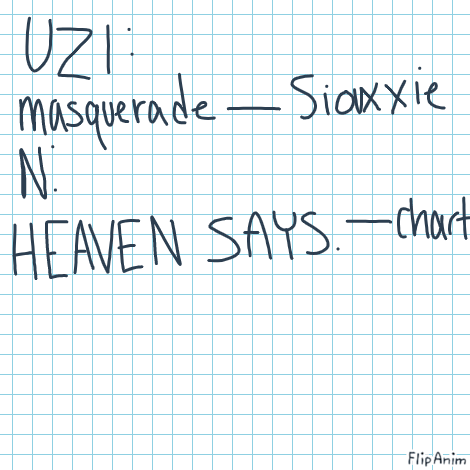 UZI:
masquerade — Siouxxie
N:
HEAVEN SAYS. — chart
FlipAnim